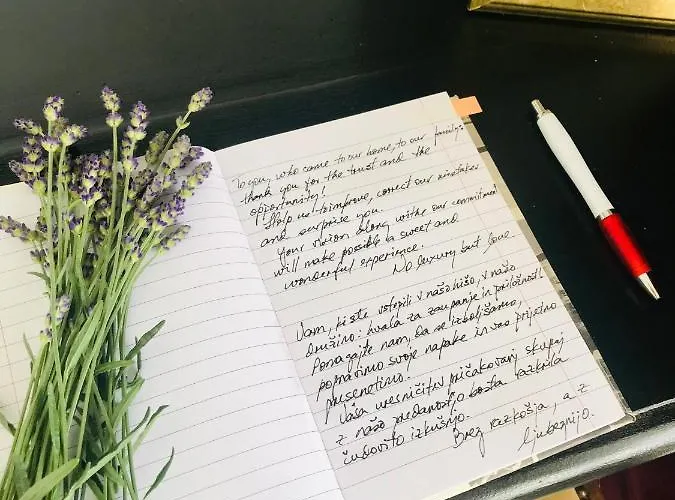 To you, who came to our home, to our family:
thank you for the trust and the
opportunity!
Help us to improve, correct our mistakes
and surprise you.
Your vision along with our commitment
will make possible a sweet and
wonderful experience.
No luxury but love
Vam, ki ste vstopili v našo hišo, v našo
družino: hvala za zaupanje in priložnost!
Pomagajte nam, da se izboljšamo,
popravimo svoje napake in vas prijetno
presenetimo.
Vaša uresničitev pričakovanj skupaj
z našo predanostjo bosta razkrila
čudovito izkušnjo.
Brez razkošja, a z
ljubeznijo.